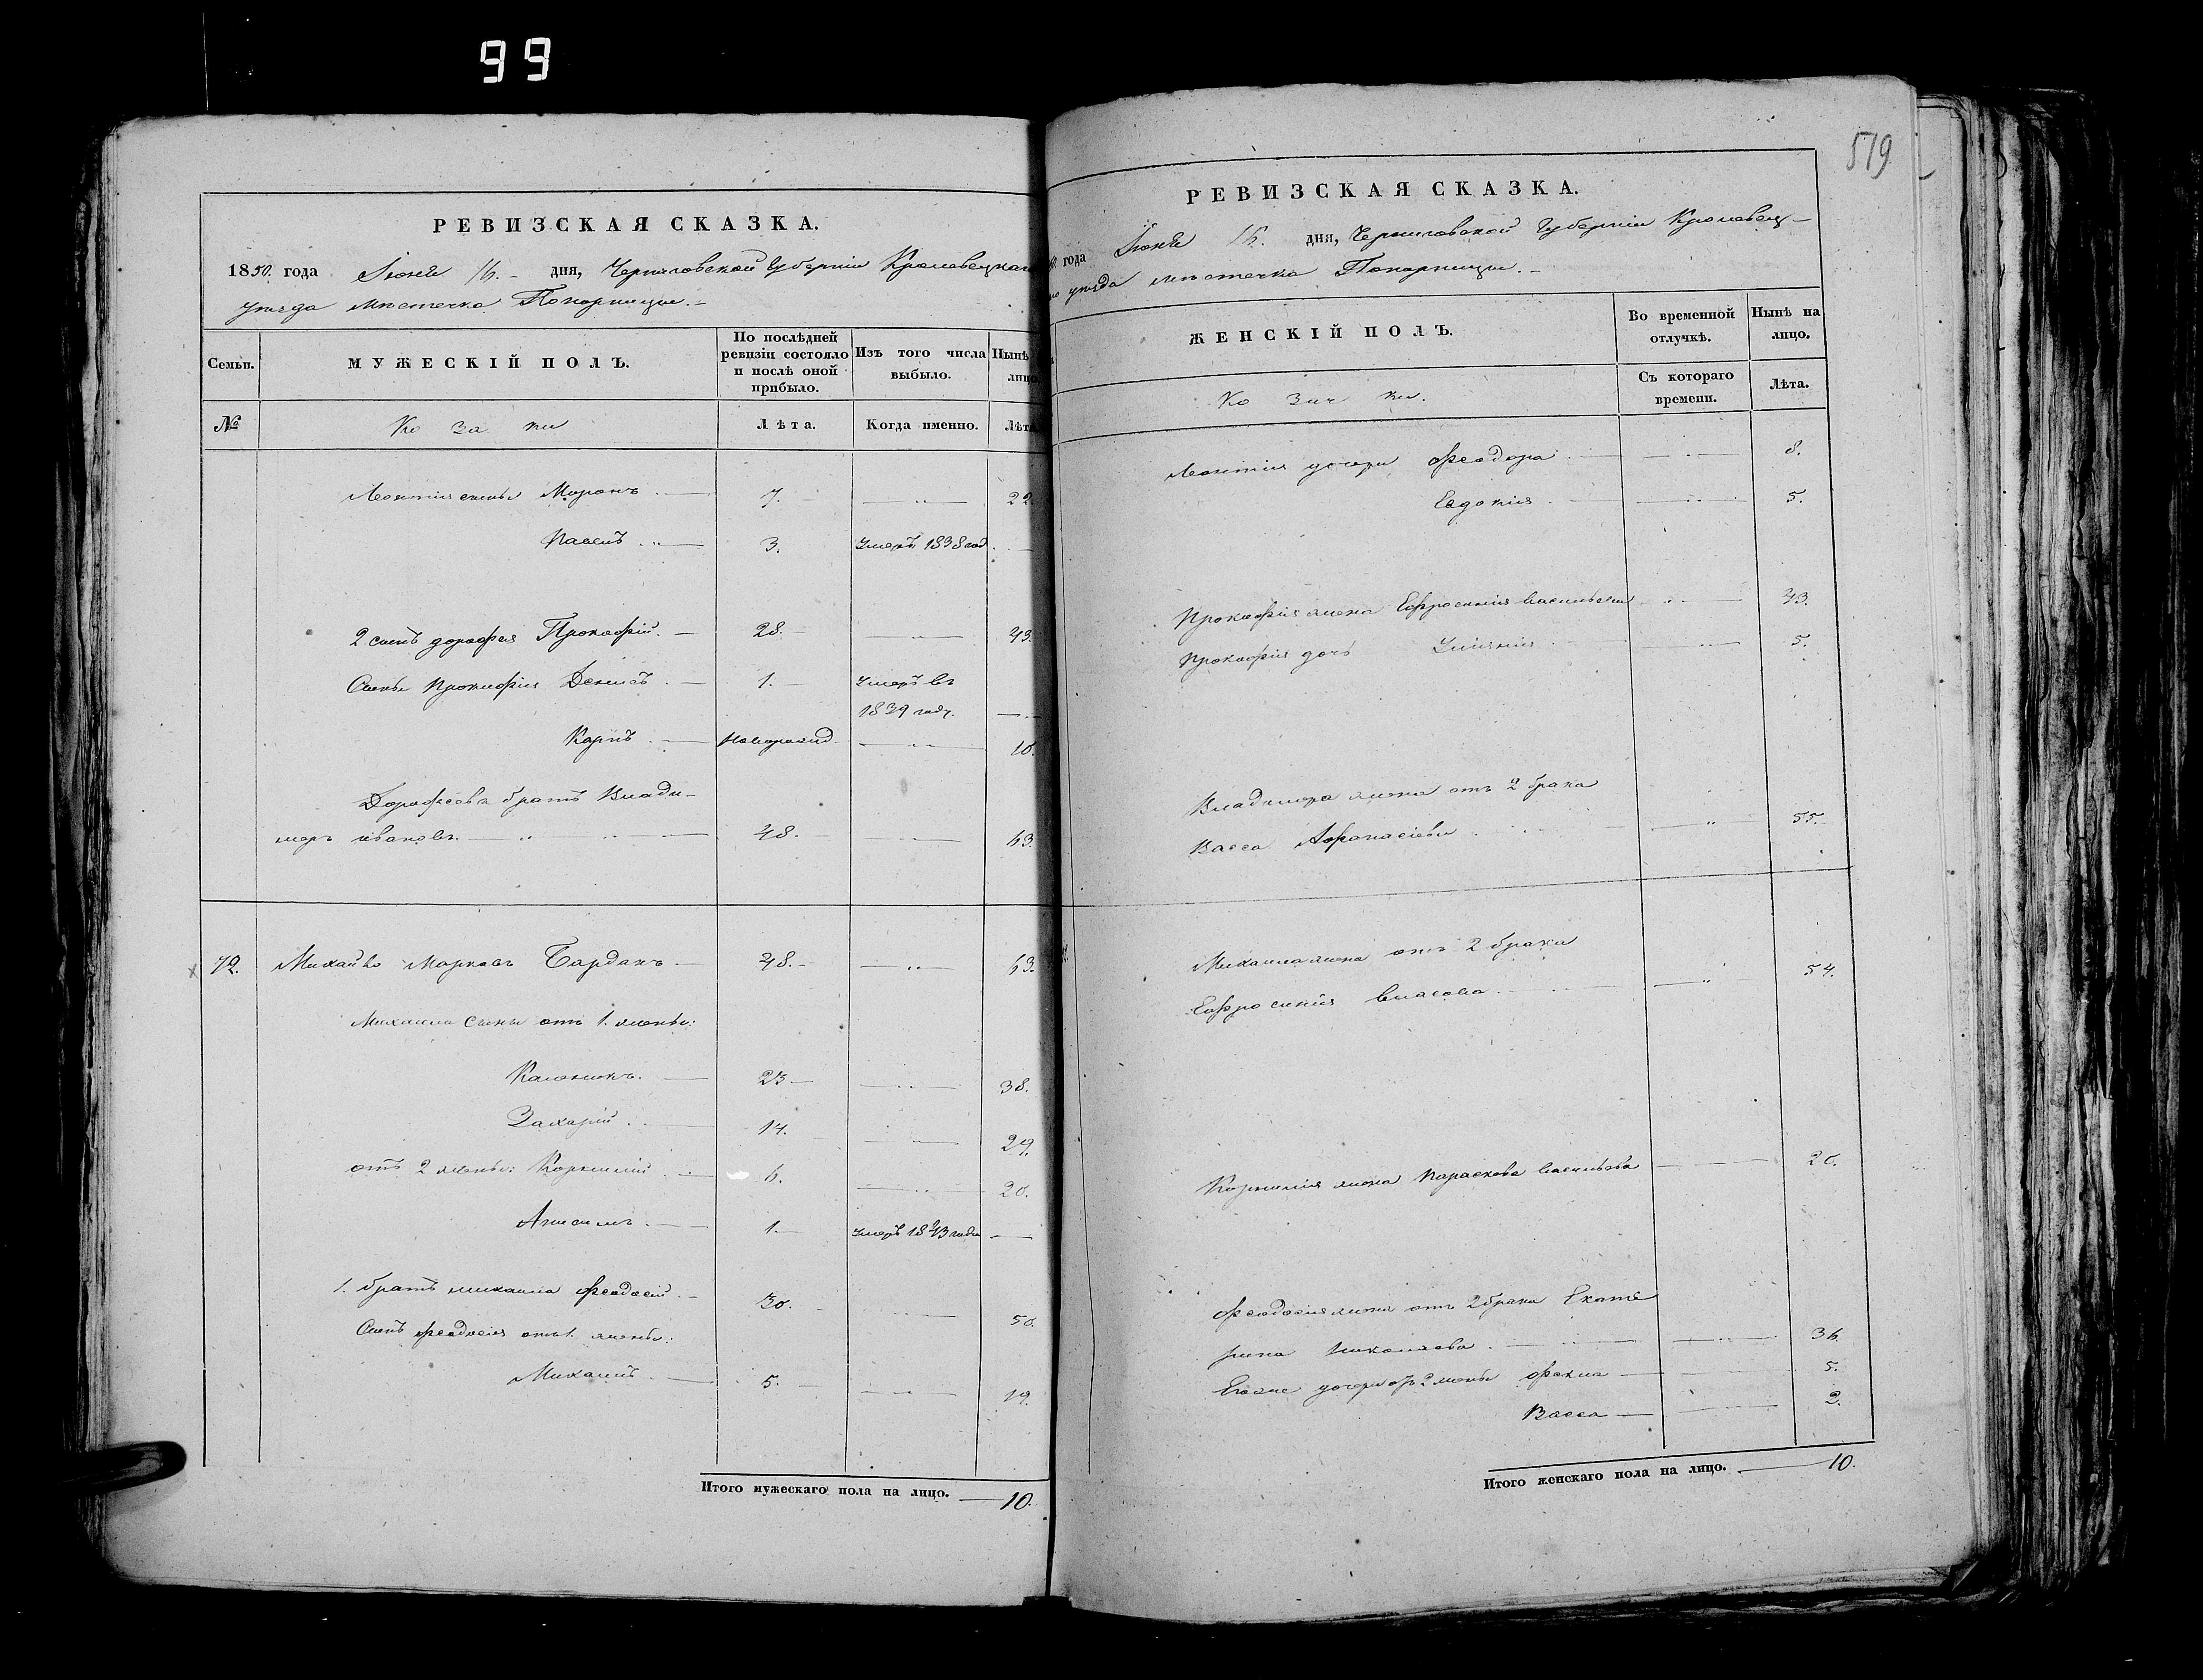 99
519
РЕВИЗСКАЯ СКАЗКА.
1850. года Іюня 16. дня, Черниговской Губерніи Кролевецкаго
уезда местечка Понорницы.
Семьи.
МУЖЕСКІЙ ПОЛЪ.
По послѣдней ревизіи состояло и послѣ оной прибыло.
Изъ того числа выбыло.
Нынѣ лицо
№
Козаки
Лѣта.
Когда именно.
Лѣт
Леонтия сыны Миронъ 7. 22.
Павелъ 3. Умеръ 1838 год
2 сынъ дорофея Прокофій. 28. 43.
Сыны Прокофія Денисъ 1. Умеръ въ
1839 году.
Карпъ Новорожд 10.
Дорофеевъ братъ Влади-
меръ ивановъ. 48. 63.
72. Михайло Марковъ Барданъ 48. 63.
Михаила сыны отъ 1. жены:
Каленикъ. 23 38.
Захарій 14. 29.
отъ 2 жены: Корнилій 6. 20.
Анисимъ 1. умеръ 1843 года
1. братъ михаила Феодосій. 30. 50.
Сынъ феодосія отъ 1. жены:
Михаилъ 5. 19.
Итого мужескаго пола на лицо. 10.
РЕВИЗСКАЯ СКАЗКА.
года Іюня 16. дня, Черниговской Губерніи Кролевец-
уезда местечка Понорницы.
ЖЕНСКІЙ ПОЛЪ.
Во временной отлучкѣ.
Нынѣ на лицо.
Козачки.
Съ котораго времени.
Лѣта.
Леонтия дочери Феодора 8.
Евдокия 5.
Прокофія жена Ефросинія васильева 43.
Прокофія дочь Улияния 5.
Владимера жена отъ 2 брака
Васса Афанасіева 55.
Михаила жена отъ 2 брака
Ефросинія власова 54.
Корнилія жена Параскева васильева 20.
Феодосія жена отъ 2 брака Екате
рина Николаева 36.
дочери отъ 2 жены 5.
Васса 2.
Итого женскаго пола на лицо. 10.